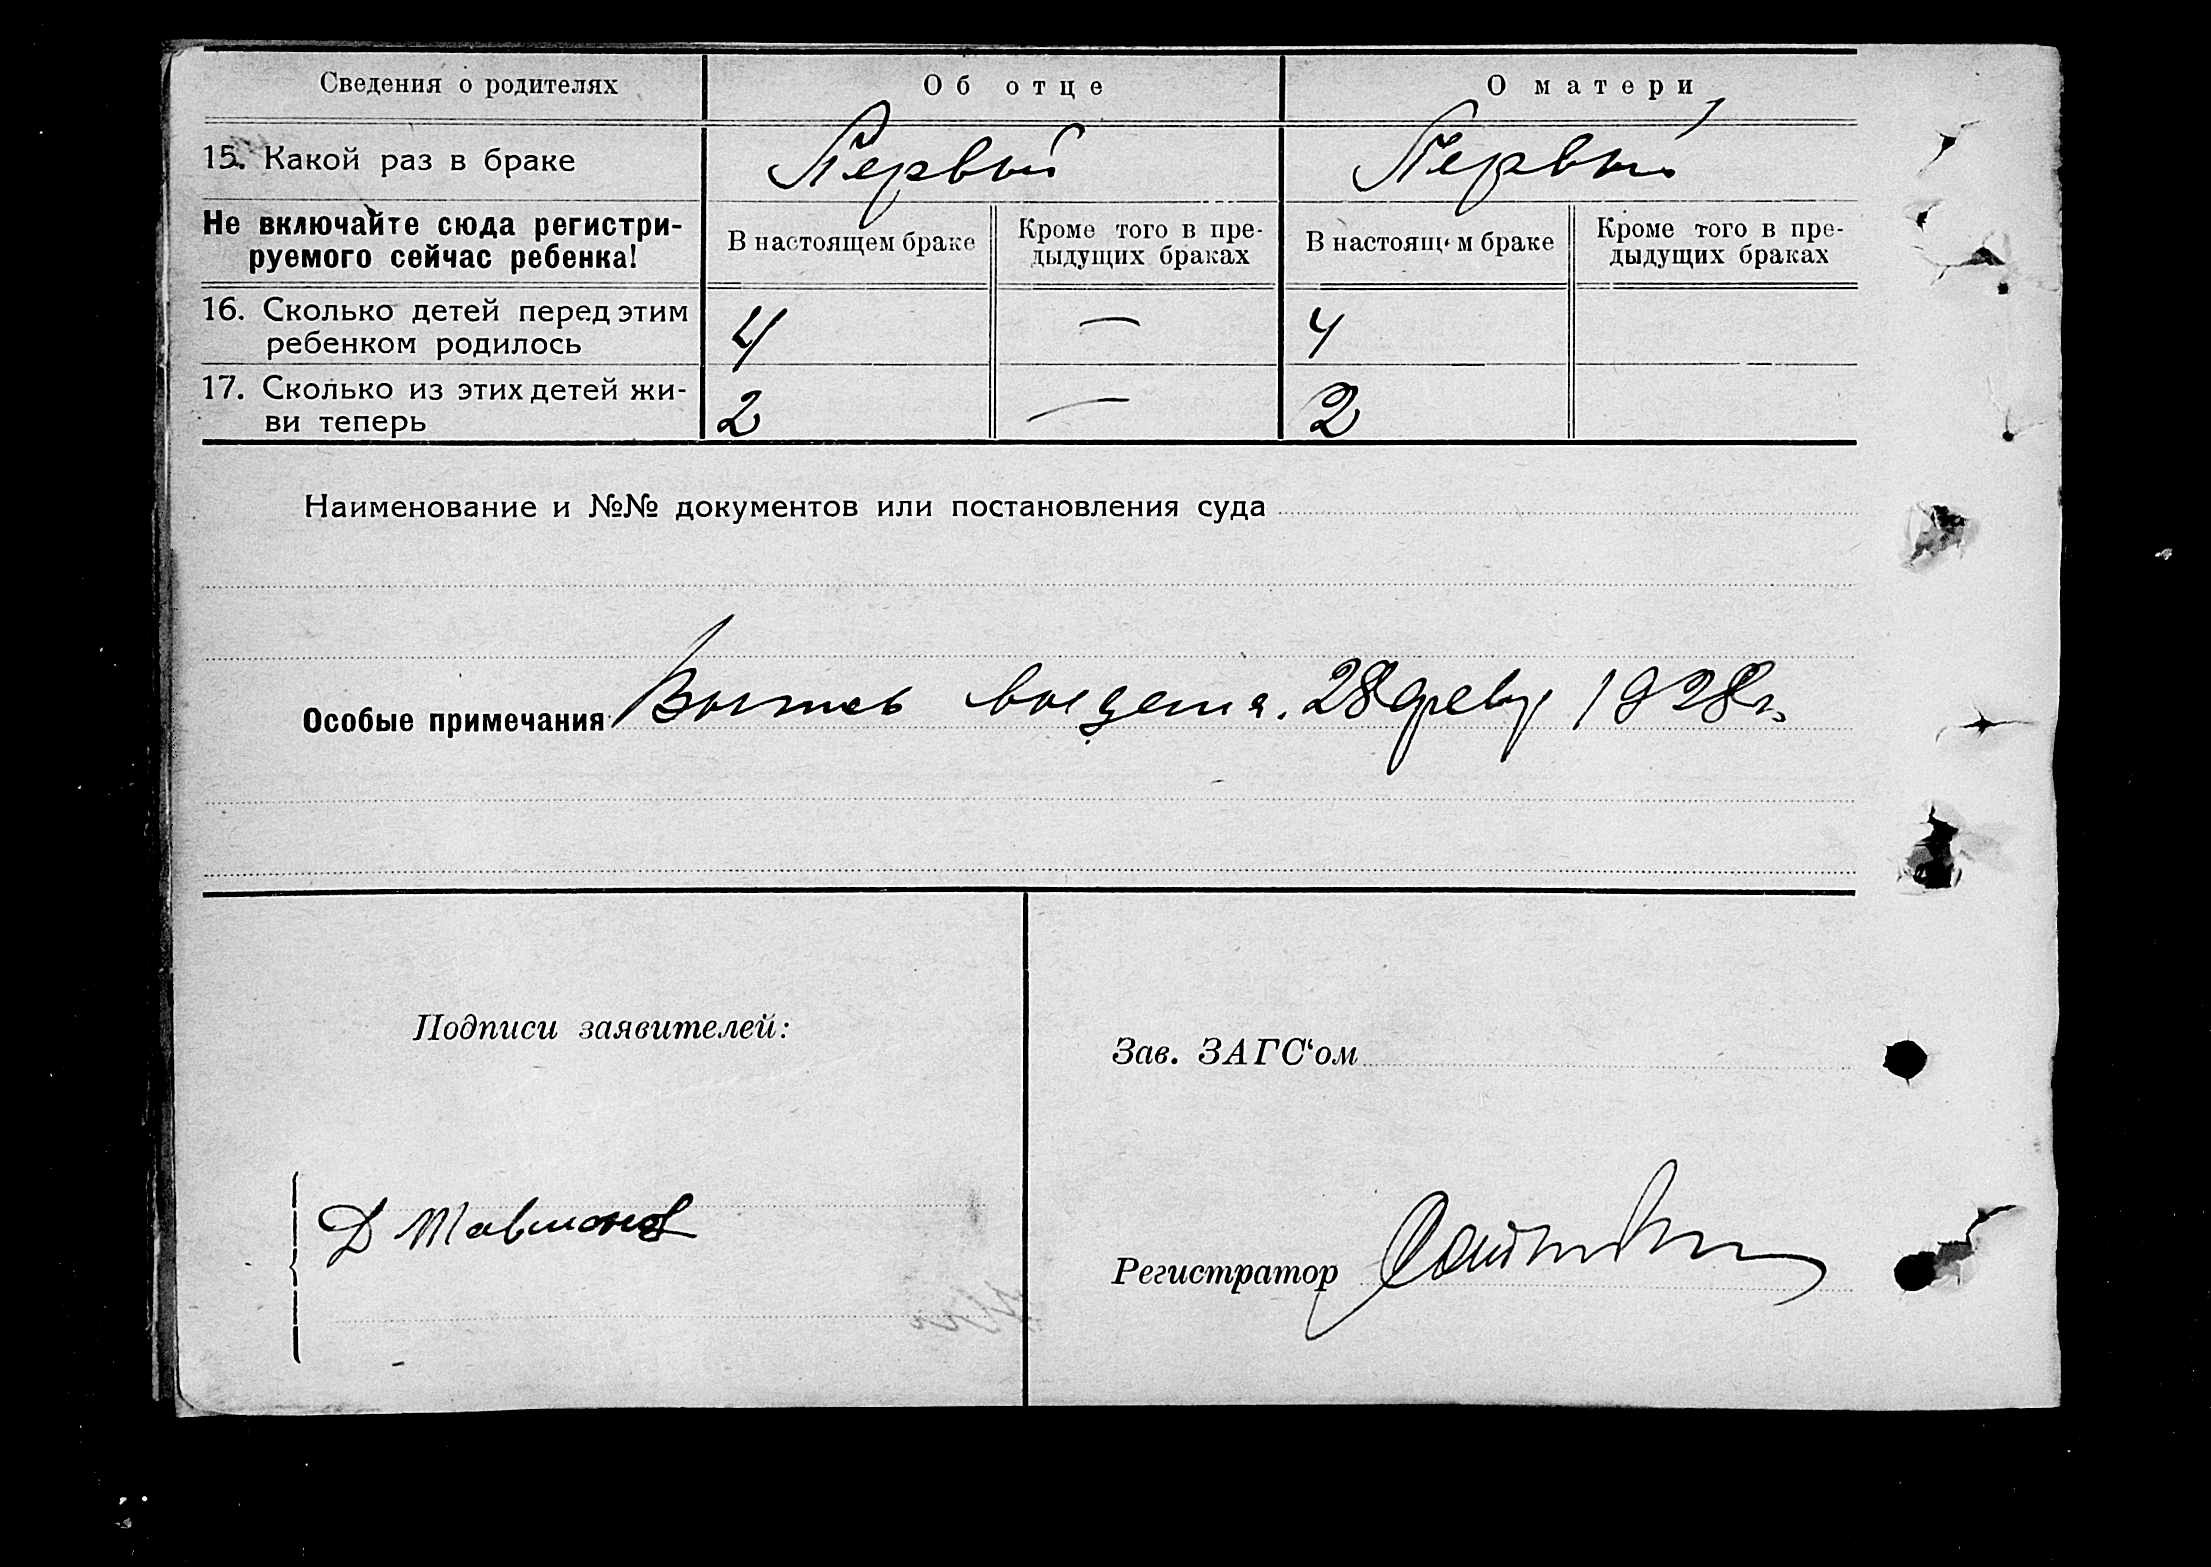 Сведения о родителях Об отце О матери
15. Какой раз в браке Первый Первый
Не включайте сюда регистри-
руемого сейчас ребенка!
В настоящем браке
Кроме того в пре-
дыдущих браках
В настоящем браке
Кроме того в пре-
дыдущих браках
16. Сколько детей перед этим
ребенком родилось
4 — 4
17. Сколько из этих детей жи-
ви теперь
2 — 2
Наименование и №№ документов или постановления суда
Особые примечания 28 февр 1928 г.
Подписи заявителей:
Зав. ЗАГС‘ом
Д
Регистратор